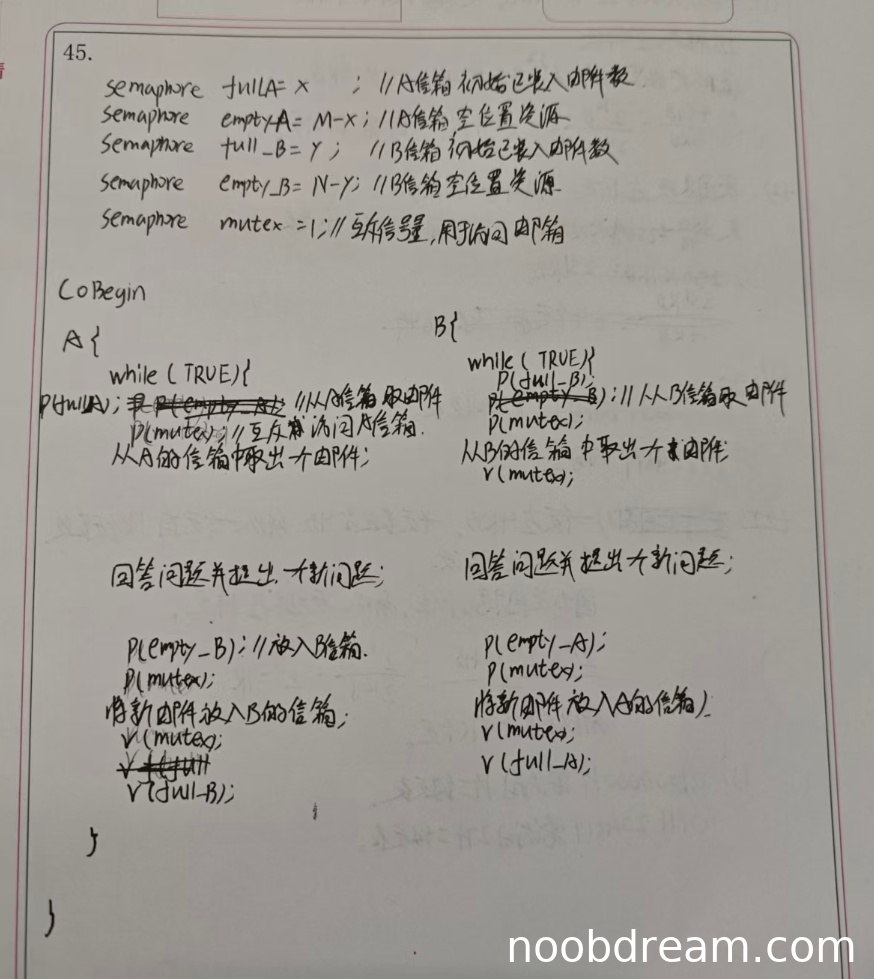 45.
semaphore fullA = X ; //A信箱初始已装入邮件数.
semaphore empty_A = M-X; //A信箱空位置资源
semaphore full_B = Y; //B信箱初始已装入邮件数
semaphore empty_B = N-Y; //B信箱空位置资源
semaphore mutex = 1; //互斥信号量,用于访问邮箱
CoBegin
A{
while (TRUE){
P(fullA); //从A信箱取邮件
P(mutex); //互斥访问A信箱.
从A的信箱中取出一个邮件;
回答问题并提出一个新问题;
P(empty_B); //放入B信箱.
P(mutex);
将新邮件放入B的信箱;
V(mutex);
V(full_B);
}
}
B{
while (TRUE){
P(full_B);
//从从B信箱取邮件
P(mutex);
从B的信箱中取出一个邮件;
V(mutex);
回答问题并提出一个新问题;
P(empty_A);
P(mutex);
将新邮件放入A的信箱);
V(mutex);
V(full_A);
noobdream.com